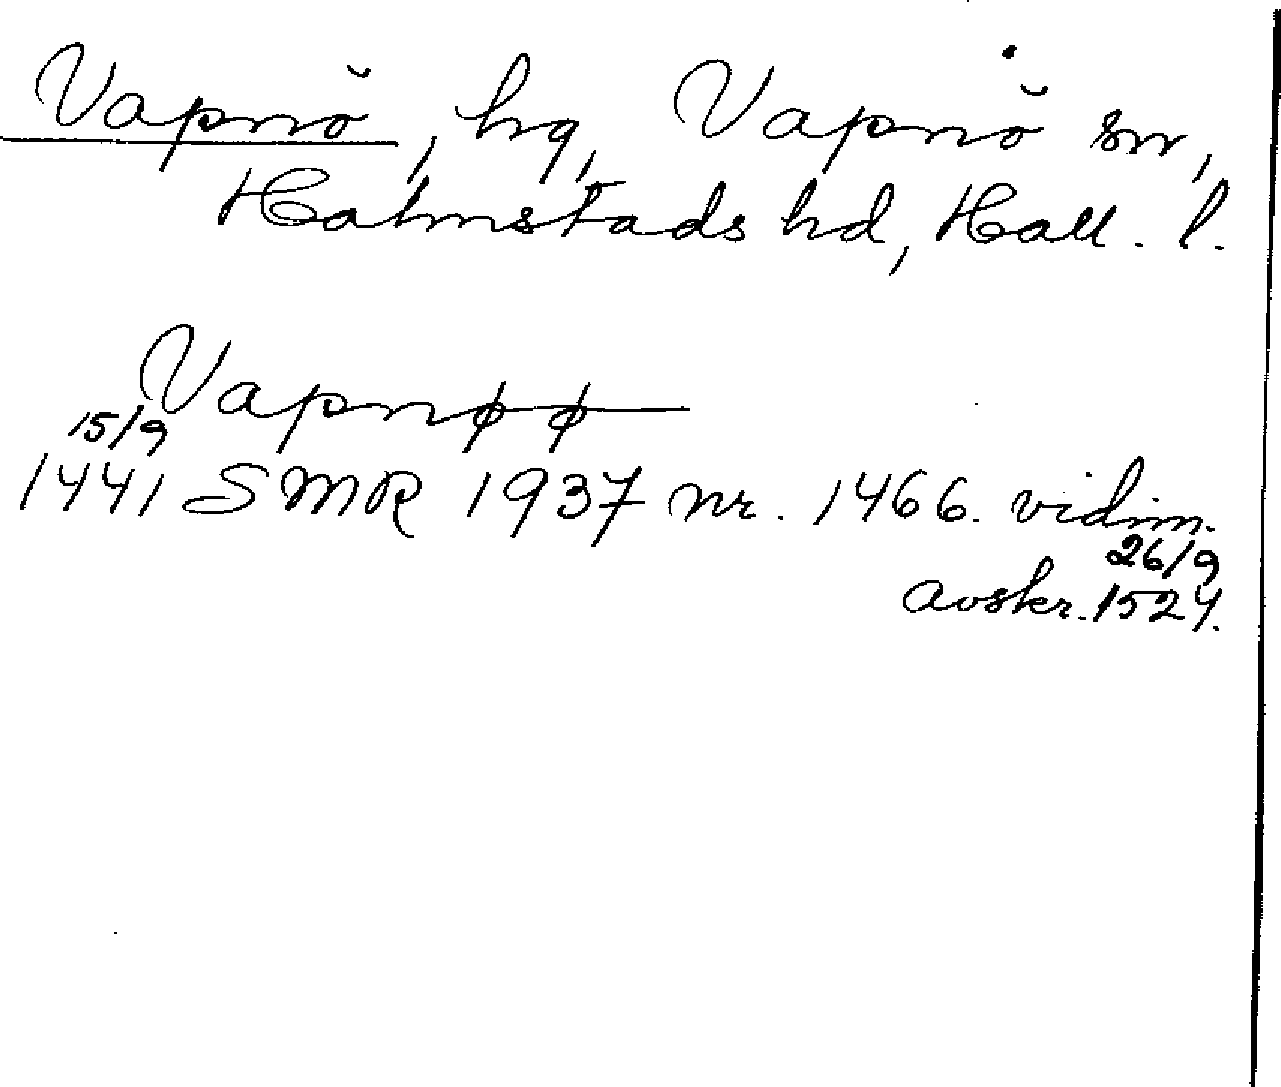 Vapnö, hg, Vapnö sn,
Halmstads hd, Hall. l.
Vapnøø
15/9
1441 SMR 1937 nr. 1466. vidim.
26/9
avskr. 1524.